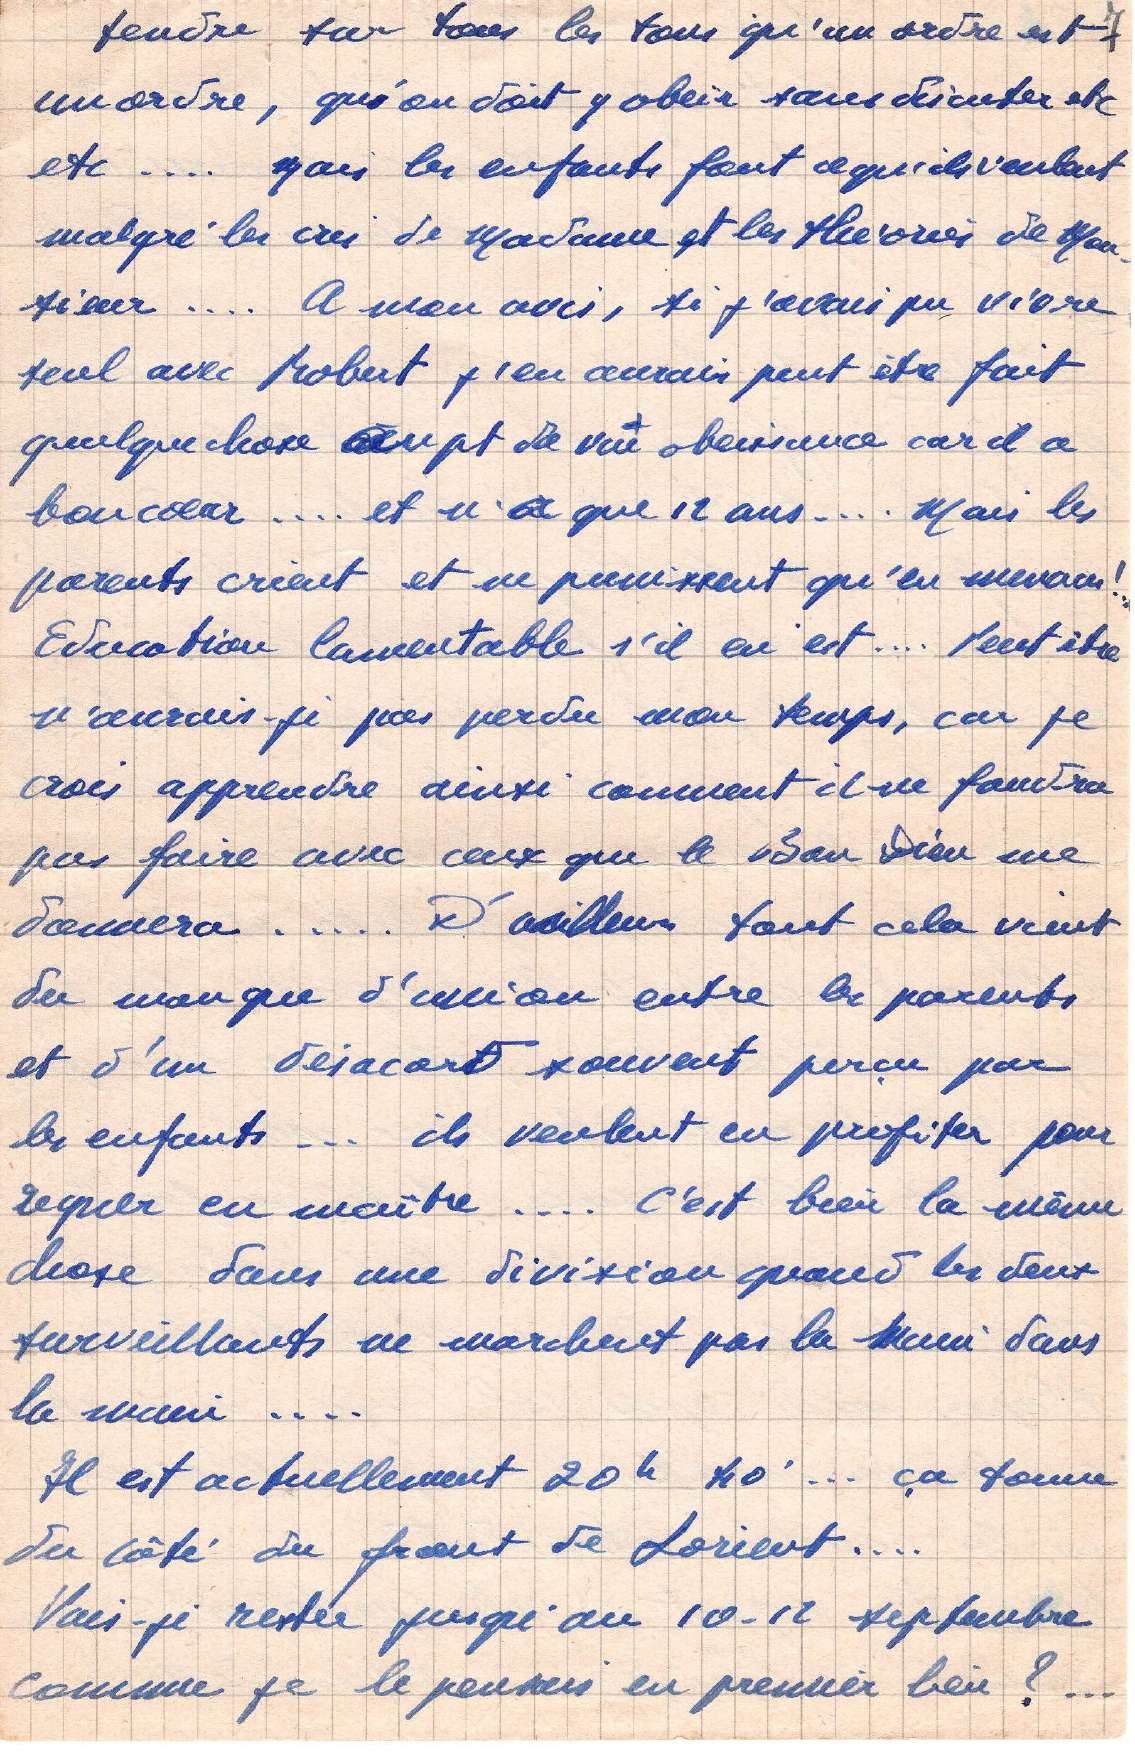 tendre sur tous les tons qu'un ordre est 7
un ordre, qu'on doit y obeir sans discuter etc
etc .... Mais les enfants font ce qu'ils veulent
malgré les cris de Madame et les théories de Mon-
sieur .... A mon avis, si j'avais pu vivre
seul avec Robert j'en aurais peut être fait
quelque chose au pt de vue obeissance car il a
bon cœur .... et n'a que 12 ans .... Mais les
parents crient et ne punissent qu'en menaces!..
Education lamentable s'il en est .... Peut être
n'aurais-je pas perdu mon temps, car je
crois apprendre ainsi comment il ne faudra
pas faire avec ceux que le Bon Dieu me
donnera ..... D'ailleurs tout cela vient
du manque d'union entre les parents
et d'un désacord souvent perçu par
les enfants ... ils veulent en profiter pour
regner en maître .... C'est bien la même
chose dans une division quand les deux
surveillants ne marchent pas la main dans
la main ....
Il est actuellement 20h 40' ... ça tonne
du côté du front de Lorient ....
Vais-je rester jusqu'au 10-12 septembre
comme je le pensais en premier lieu ? ...